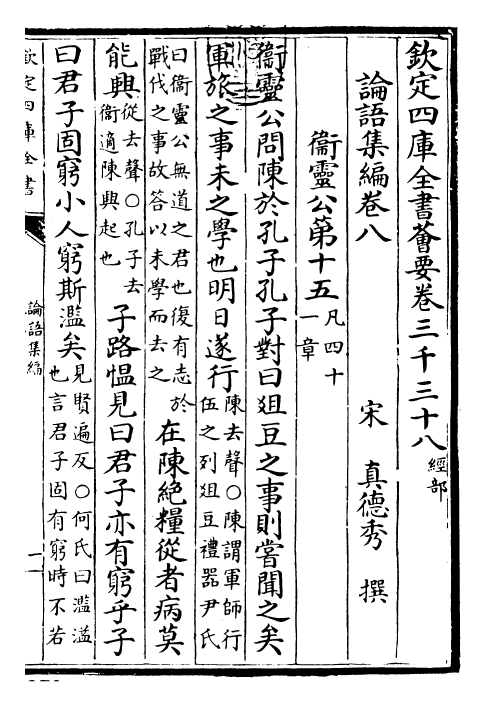 欽定四庫全書薈要卷三千三十八經部
論語集編卷八
宋 真德秀 撰
衛靈公第十五凡四十一章
衛靈公問陳於孔子孔子對曰俎豆之事則嘗聞之矣
軍旅之事未之學也明日遂行陳去聲○陳謂軍師行伍之列俎豆禮器尹氏
曰衛靈公無道之君也復有志於戰伐之事故答以未學而去之在陳絕糧從者病莫
能興從去聲○孔子去衛適陳興起也子路愠見曰君子亦有窮乎子
曰君子固窮小人窮斯濫矣見賢遍反○何氏曰濫溢也言君子固有窮時不若
欽定四庫全書
論語集編
一